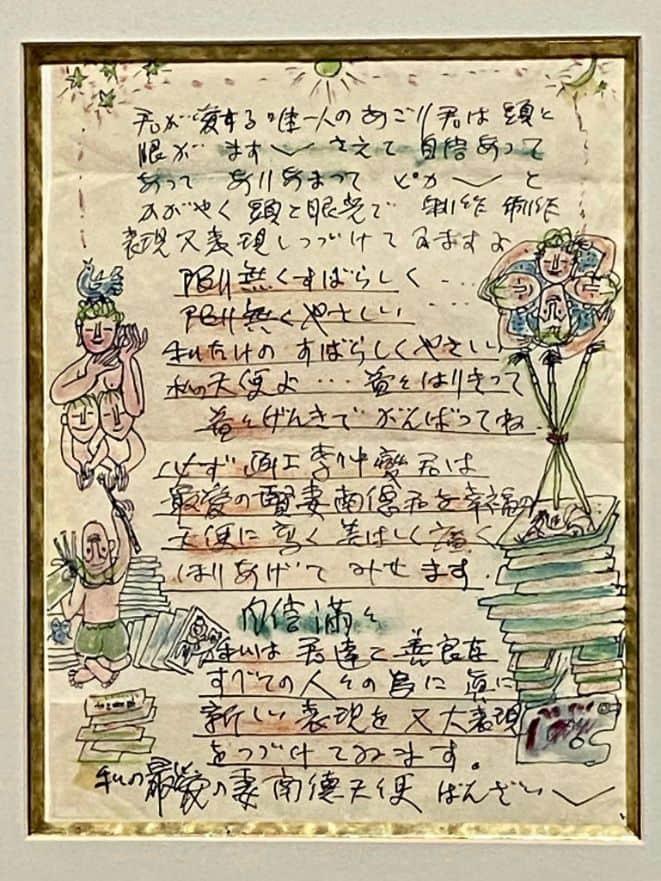 君が愛する唯一人のあごり君は頭と
眼が ます〳〵 さえて 自信あって
あって ありあまって ピカ〳〵 と
かがやく 頭と眼光で 制作 制作
表現又表現しつづけてゐますよ
限り無くすばらしく ‥‥
限り無くやさしい ‥‥
私だけの すばらしくやさしい
私の天使よ … 益々はりきって
益々げんきで がんばってね.
必ず 画工 李仲燮君は
最愛の賢妻南徳君を幸福の
天使に 高く 美はしく 広く
ほりあげて みせます.
自信満々
私は 君達と 善良な
すべての人々の為に 真に
新しい 表現を 又 大表現
をつづけてゐます。
私の最愛の妻南徳天使 ばんざい〳〵